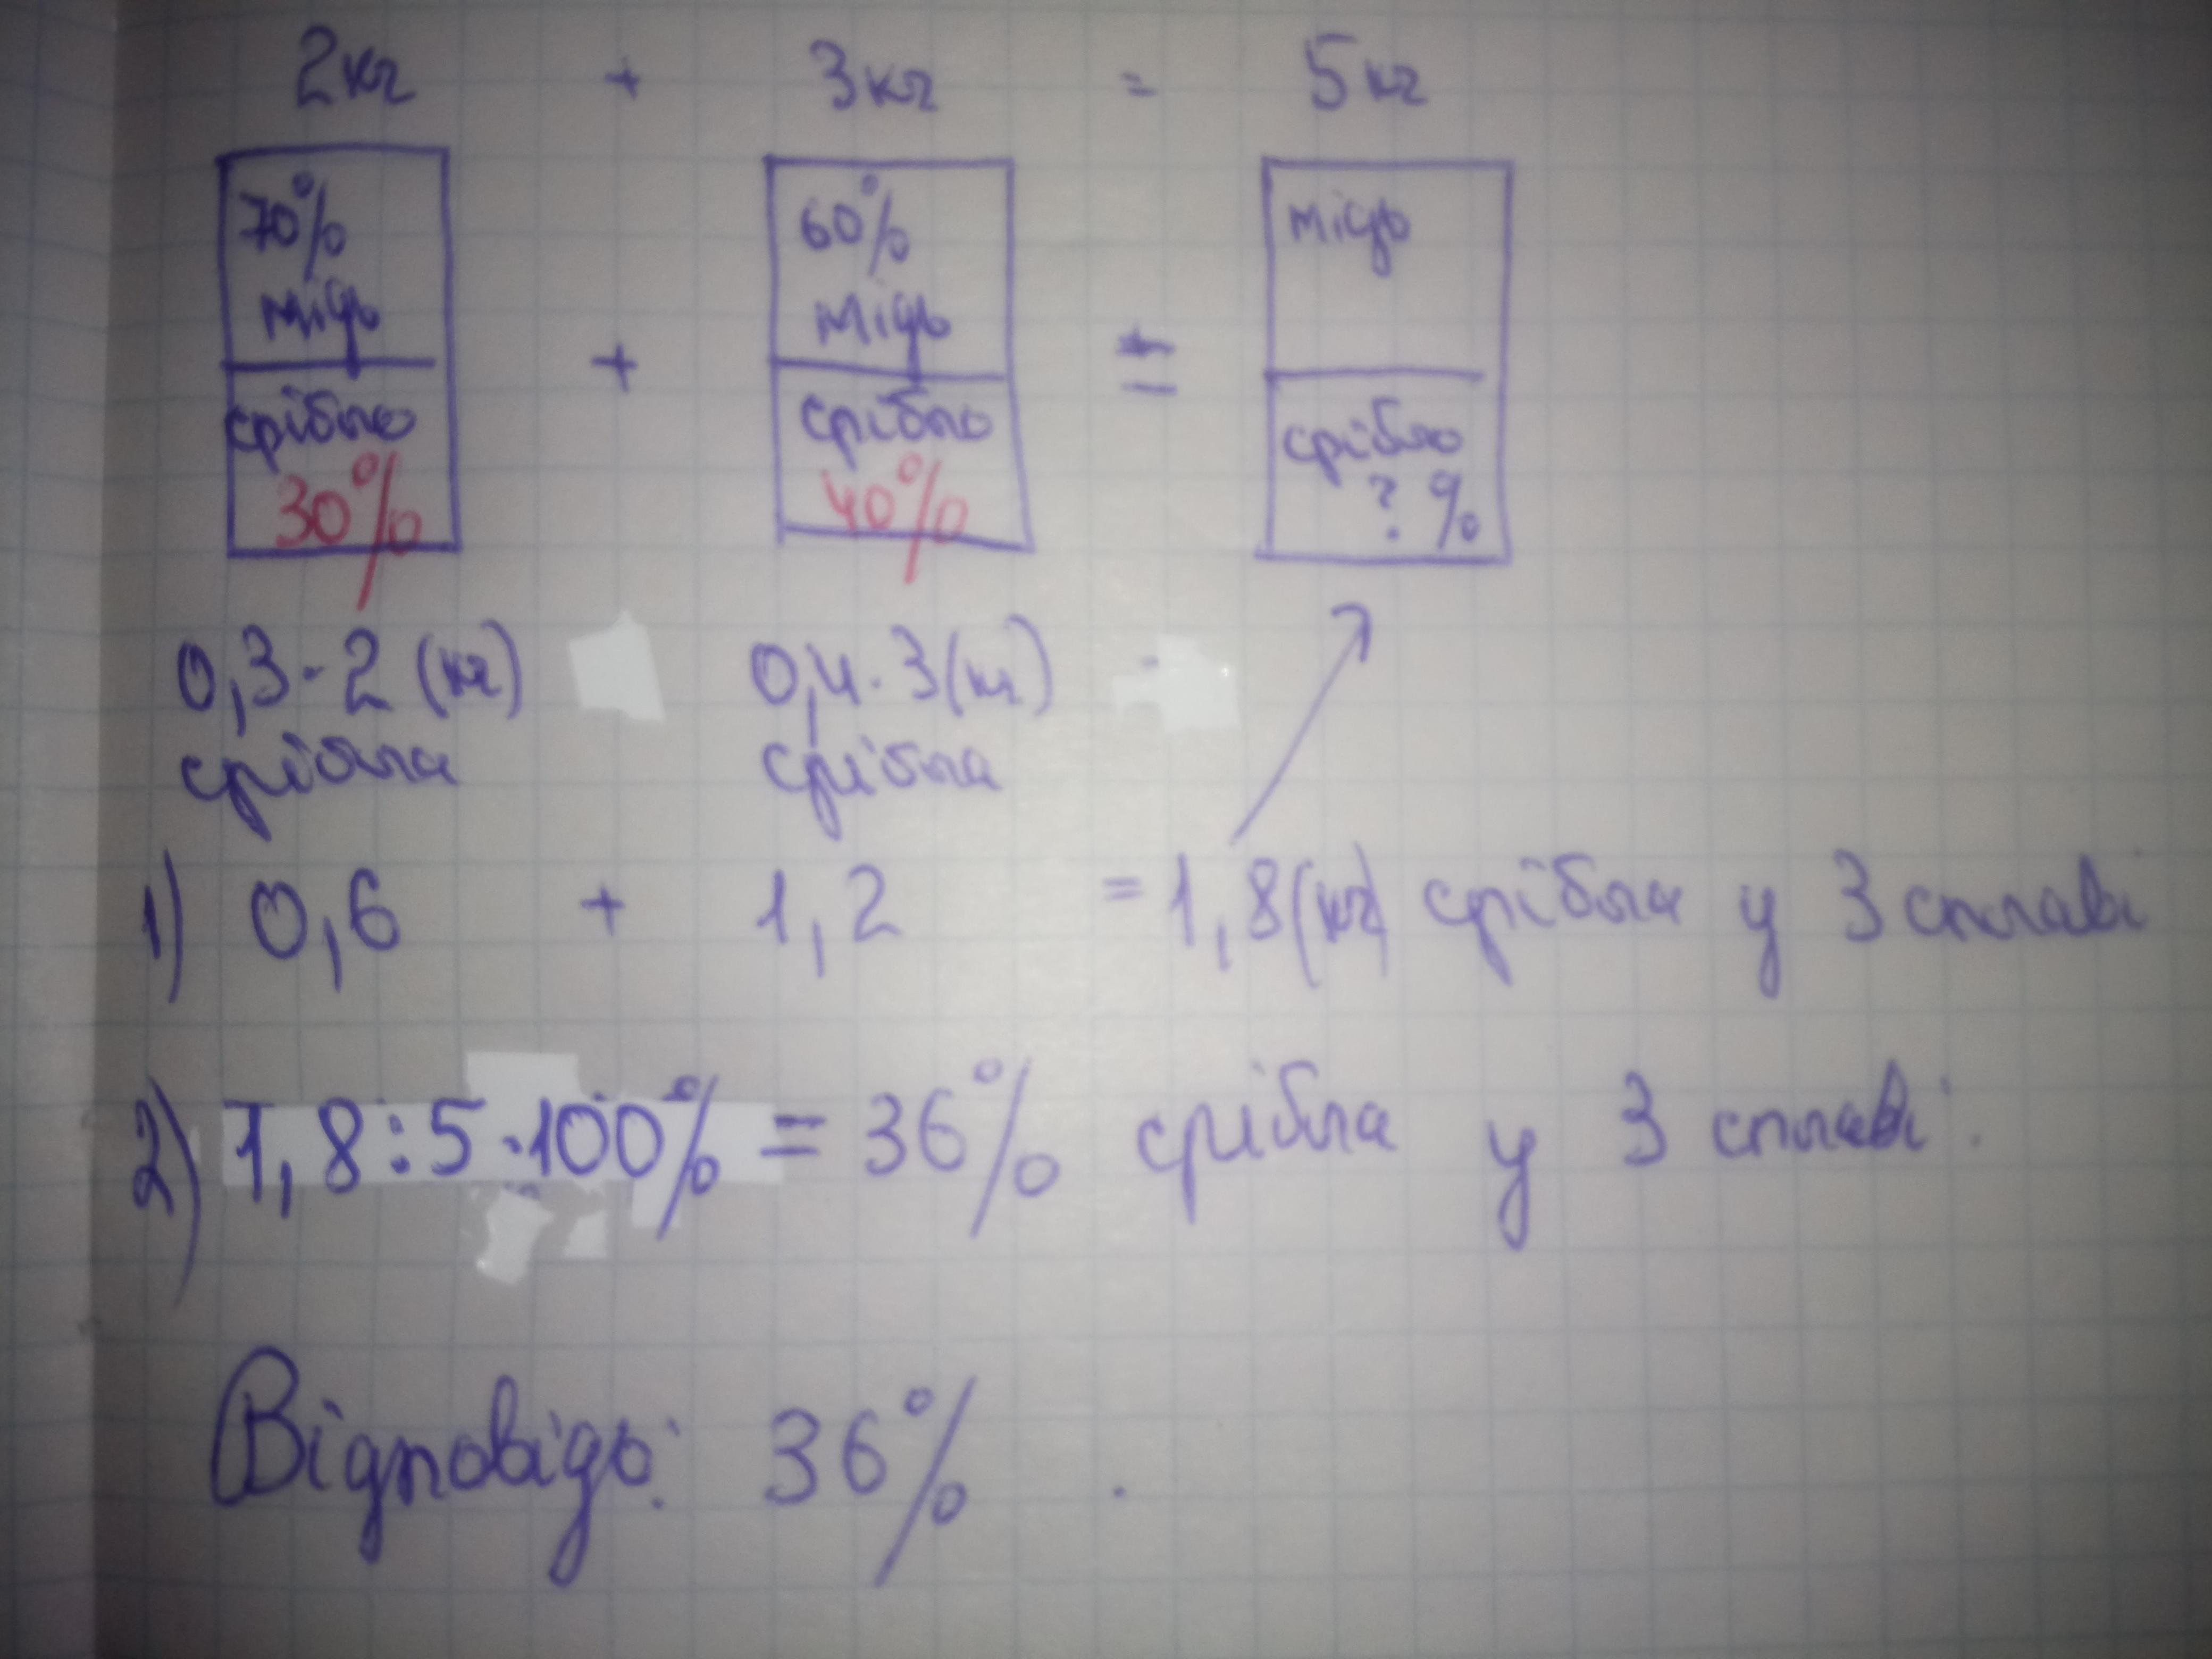 2кг + 3кг = 5кг
70% 60% мідь
мідь мідь
+ =
срібло срібло срібло
30% 40% ? %
0,3·2 (кг) 0,4·3(кг)
срібла срібла
1) 0,6 + 1,2 = 1,8(кг) срібла у 3 сплаві
2) 1,8:5·100% = 36% срібла у 3 сплаві.
Відповідь: 36% .